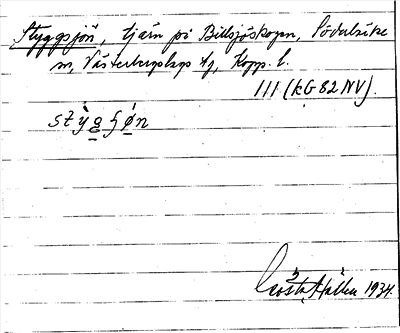 Styggsjön, tjärn på Billsjöskogen, Söderbärke
sn, Västerbergslags dj, Kopp. l.
111 (KG 82 NV).
stỳgfø̀n
Gösta Hallen 1934